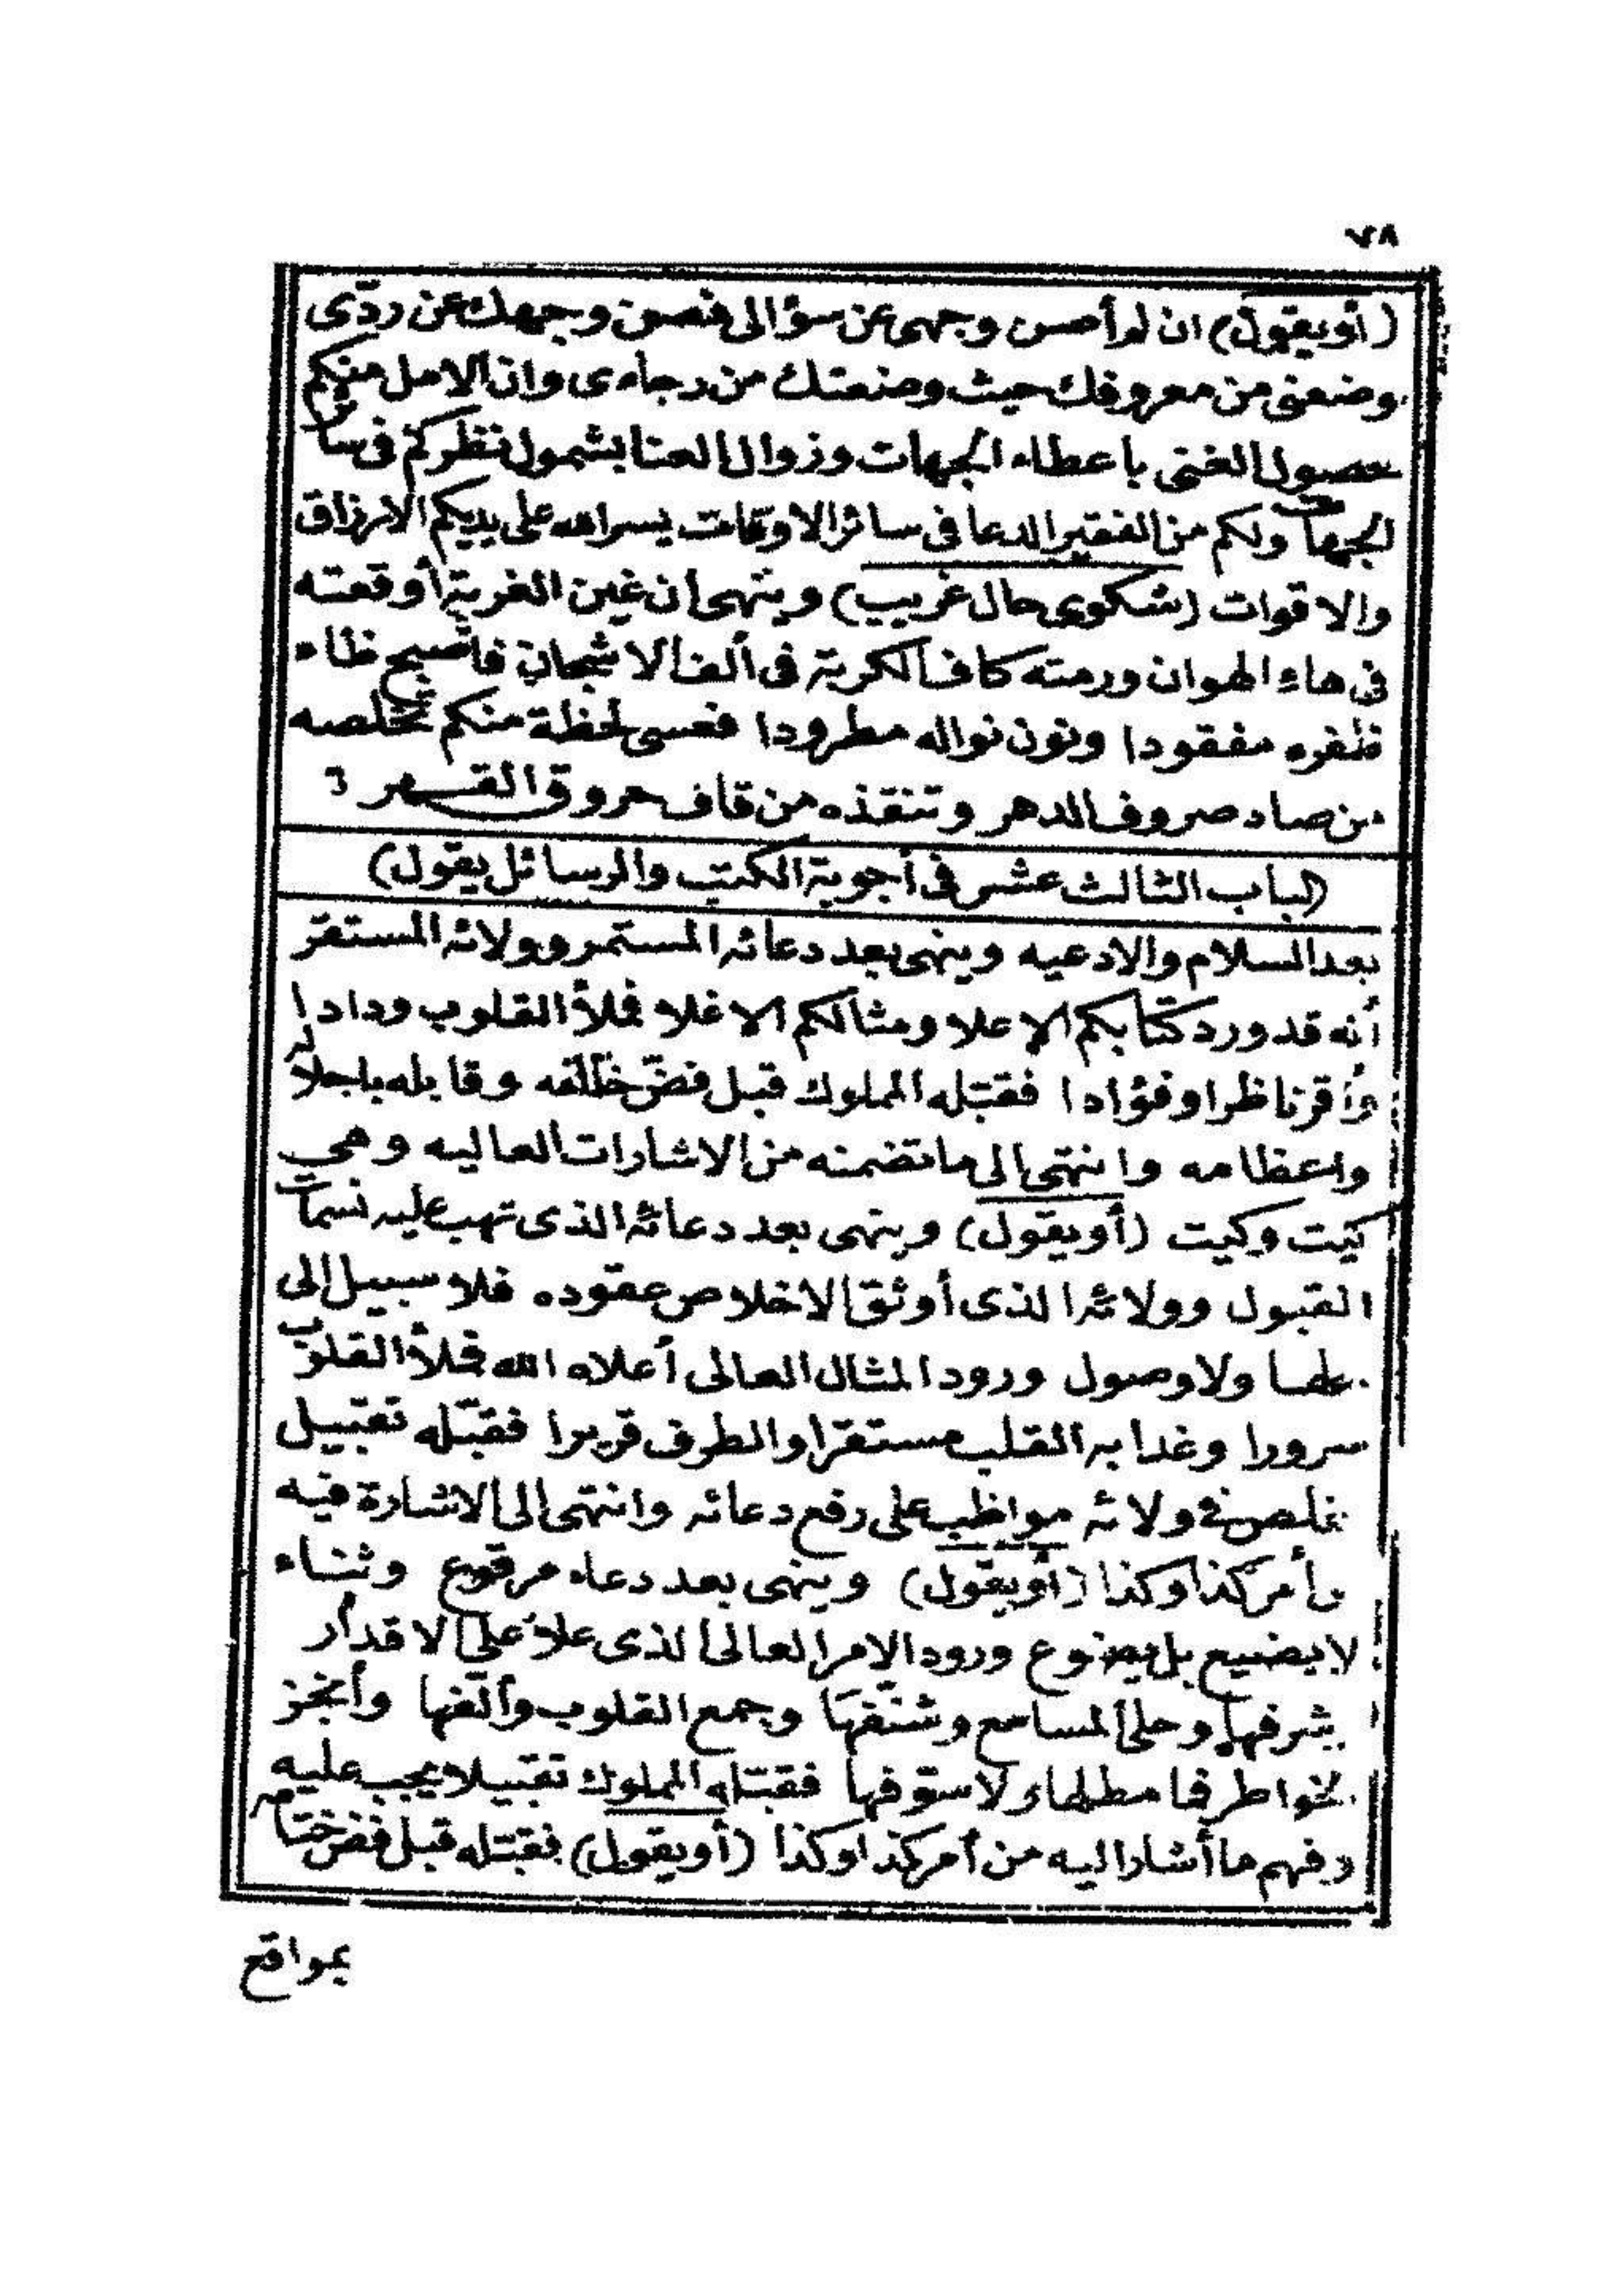 ٧٨
(أويقول) ان لم أصن وجهى عن سؤالى فصن وجهك عن ردّى
وضعنى من معروفك حيث وضعتك من رجاءى وان الامل منكم
حصول الغنى باعطاء الجهات وزوال العنا بشمول نظركم فى سائر
الجهات ولكم من الفقير الدعا فى سائر الاوقات يسر الله على يديكم الارزاق
والاقوات (شكوى حال غريب) وينهى ان غين الغربة أوقعته
فى هاء الهوان ورمته كاف الكربة فى ألف الاشجان فأصبح ظاء
ظفره مفقودا ونون نواله مطرودا فعسى لحظة منكم تخلصه
من صاد صروف الدهر وتنقذه من قاف حروق القهر
(الباب الثالث عشر فى أجوبة الكتب والرسائل يقول)
بعد السلام والادعيه وينهى بعد دعائه المستمر وولائه المستقر
أنه قد ورد كتابكم الاعلا ومثالكم الاغلا فملأ القلوب ودادا
وأقر ناظرا وفؤادا فقبّله المملوك قبل فضّ وقابله باجلاله
واعظامه وانتهى الى ما تضمنه من الاشارات العاليه وهى
كيت وكيت (أويقول) وينهى بعد دعائه الذى تهب عليه نسمات
القبول وولائه الذى أوثق الاخلاص عقوده فلا سبيل الى
حلها ولا وصول ورود المثال العالى أعلاه الله فملأ القلوب
سرورا وغدا به القلب مستقرا والطرف قريرا فقبّله تقبيل
مخلص فى ولائه مواظب على رفع دعائه وانتهى الى الاشارة فيه
وأمر كذا وكذا (أويقول) وينهى بعد دعاء مرفوع وثناء
لا يضيع بل يضوع ورود الامر العالى الذى علا على الاقدار
بشرفها وحلى المسامع وشنّفها وجمع القلوب وألّفها وأنجز
للخواطر فما مطلها ولا سوّفها فقبّله المملوك تقبيلا يجب عليه
وفهم ما أشار اليه من أمر كذا وكذا (أويقول) فقبّله قبل فض ختامه
بمواقع